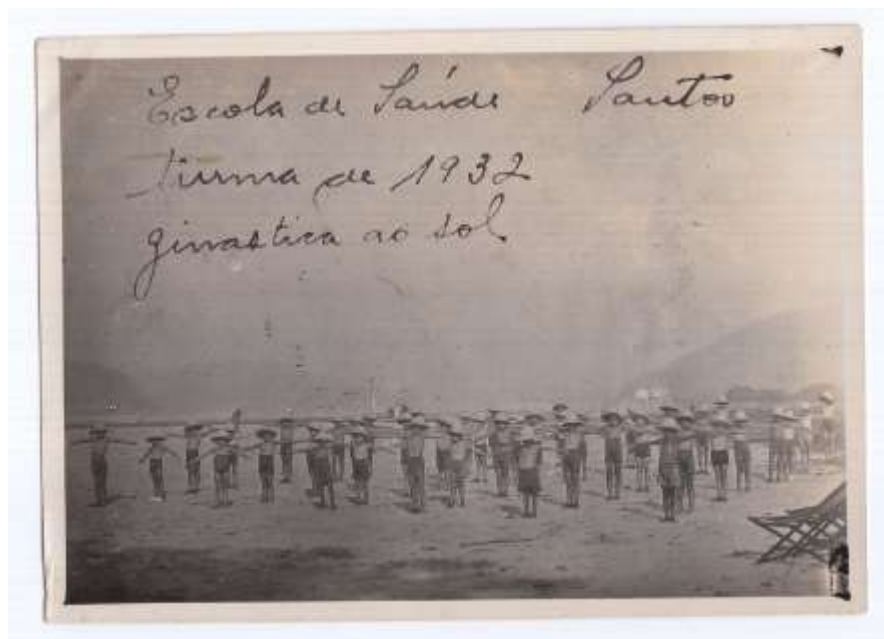 Escola de Saúde Santos
turma de 1932
ginastica ao sol